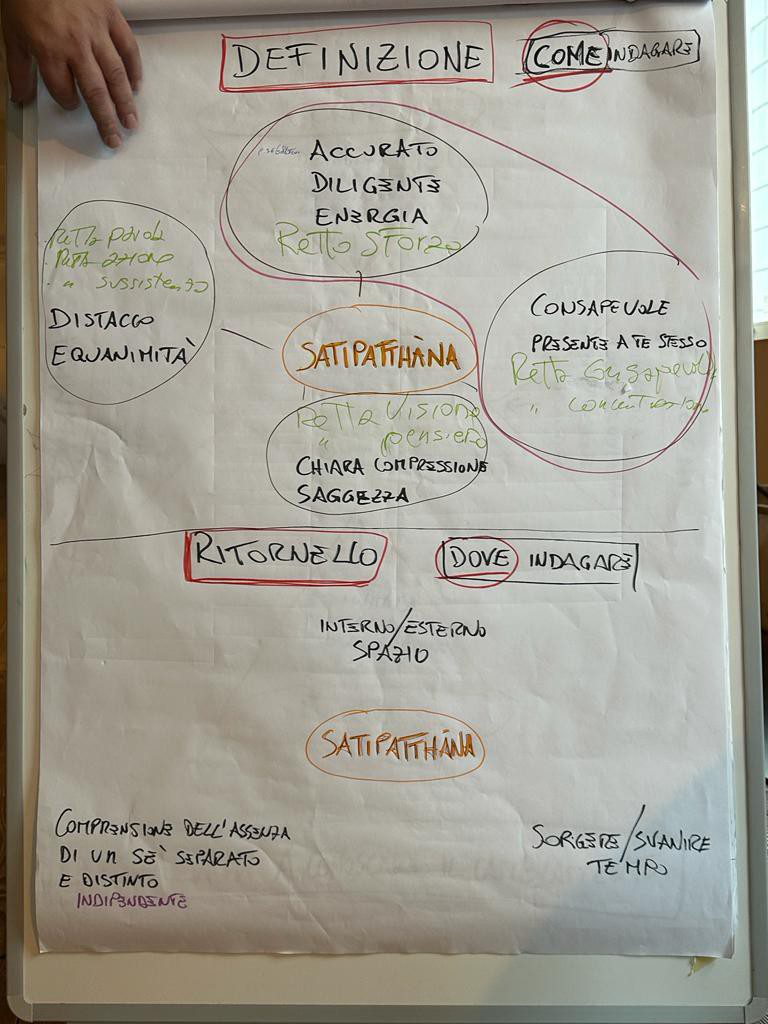 DEFINIZIONE
COME INDAGARE
ACCURATO
DILIGENTE
ENERGIA
Retto Sforzo
Retta parola
Retta azione
" sussistenza
DISTACCO
EQUANIMITÀ
CONSAPEVOLE
PRESENTE A TE STESSO
Retta Consapevol
" concentrazione
SATIPATTHÀNA
Retta Visione
" pensiero
CHIARA COMPRESSIONE
SAGGEZZA
RITORNELLO
DOVE INDAGARE
INTERNO/ESTERNO
SPAZIO
SATIPATTHÀNA
COMPRENSIONE DELL'ASSENZA
DI UN SE' SEPARATO
E DISTINTO
INDIPENDENTE
SORGERE/SVANIRE
TEMPO